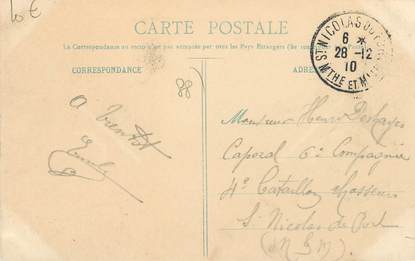 10€
CARTE POSTALE
La Correspondance au recto n'est pas acceptée par tous les Pays Étrangers (Se rense
CORRESPONDANCE
ADRE
ST NICOLAS DU PORT
6 *
28 - 12
10
MTHE ET M
88
a bientôt
Emile
Monsieur Henri Deshayes
Caporal 6e Compagnie
4e bataillon chasseurs
St Nicolas de Port
(M & M).